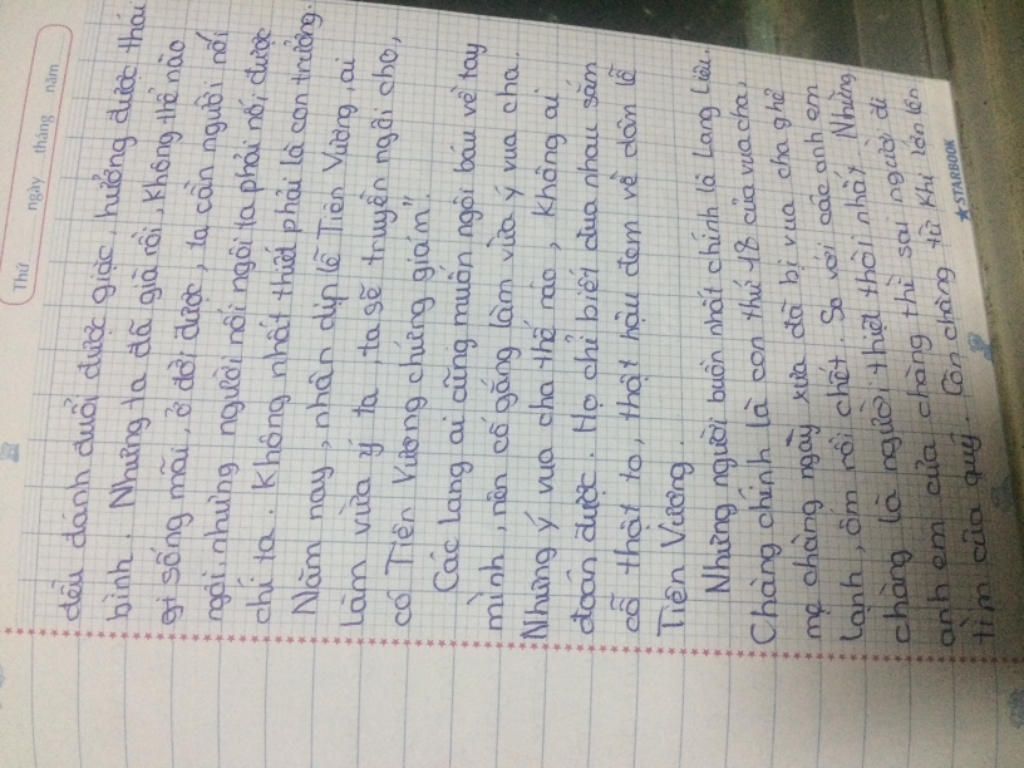 Thứ ngày tháng năm
đều đánh đuổi được giặc, hưởng được thái
bình. Nhưng ta đã già rồi, không thể nào
sống mãi, ở đời được, ta cần người nối
ngôi, nhưng người nối ngôi ta phải nối được
chí ta. Không nhất thiết phải là con trưởng.
Năm nay, nhân dịp lễ Tiên Vương, ai
làm vừa ý ta, ta sẽ truyền ngôi cho,
có Tiên Vương chứng giám".
Các lang ai cũng muốn ngôi báu về tay
mình, nên cố gắng làm vừa ý vua cha.
Nhưng ý vua cha thế nào, không ai
đoán được. Họ chỉ biết đua nhau sắm
cỗ thật to, thật hậu đem về dân lễ
Tiên Vương.
Nhưng người buồn nhất chính là Lang Liêu.
Chàng chính là con thứ 18 của vua cha,
mẹ chàng ngày xưa đã bị vua cha ghẻ
lạnh, ốm rồi chết. So với các anh em
chàng là người thiệt thòi nhất. Nhưng
anh em của chàng thì sai người đi
tìm của quý. Còn chàng từ khi lớn lên
STARBOOK